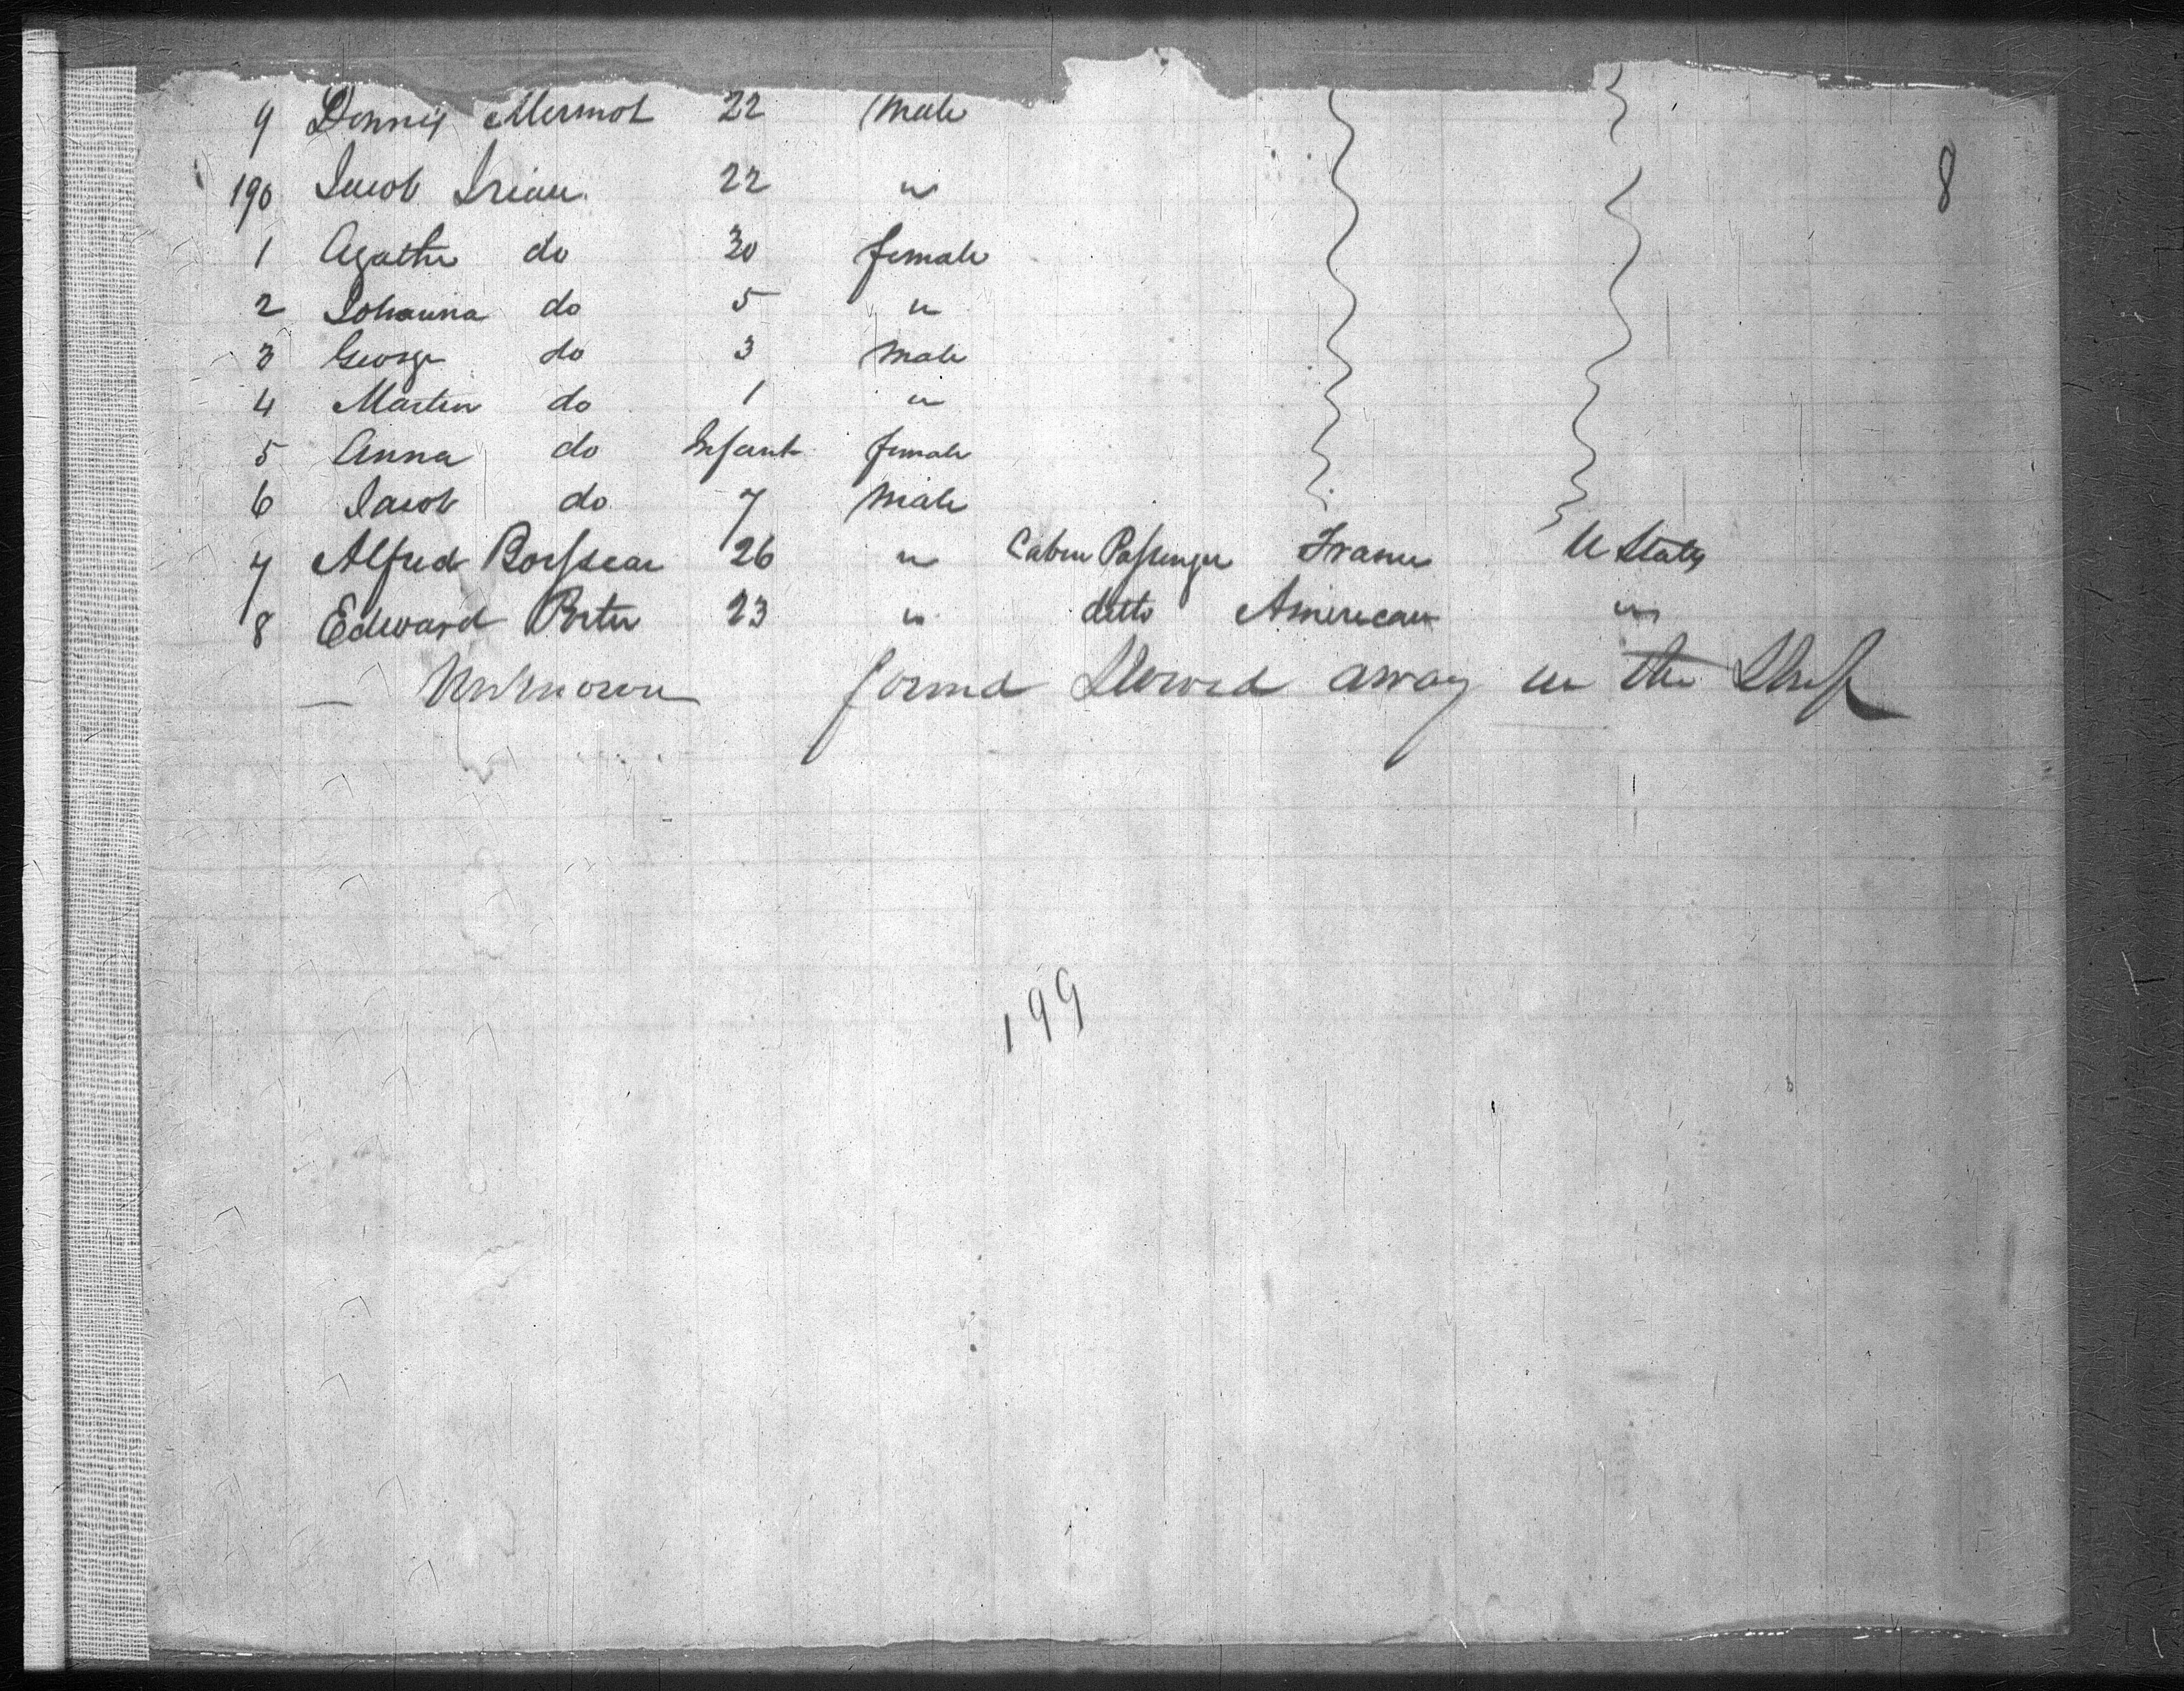 9 Dennis Mermot 22 Male
8
190 Jacob 22 "
1 Agathe do 30 female
2 Johanna do 5 "
3 George do 3 Male
4 Martin do 1 "
5 Anna do Infant female
6 Jacob do 7 Male
7 Alfred 26 " Cabin Passenger France U States
8 Edward Porter 23 " ditto American "
— Unknown found Stowed away in the Ship
199